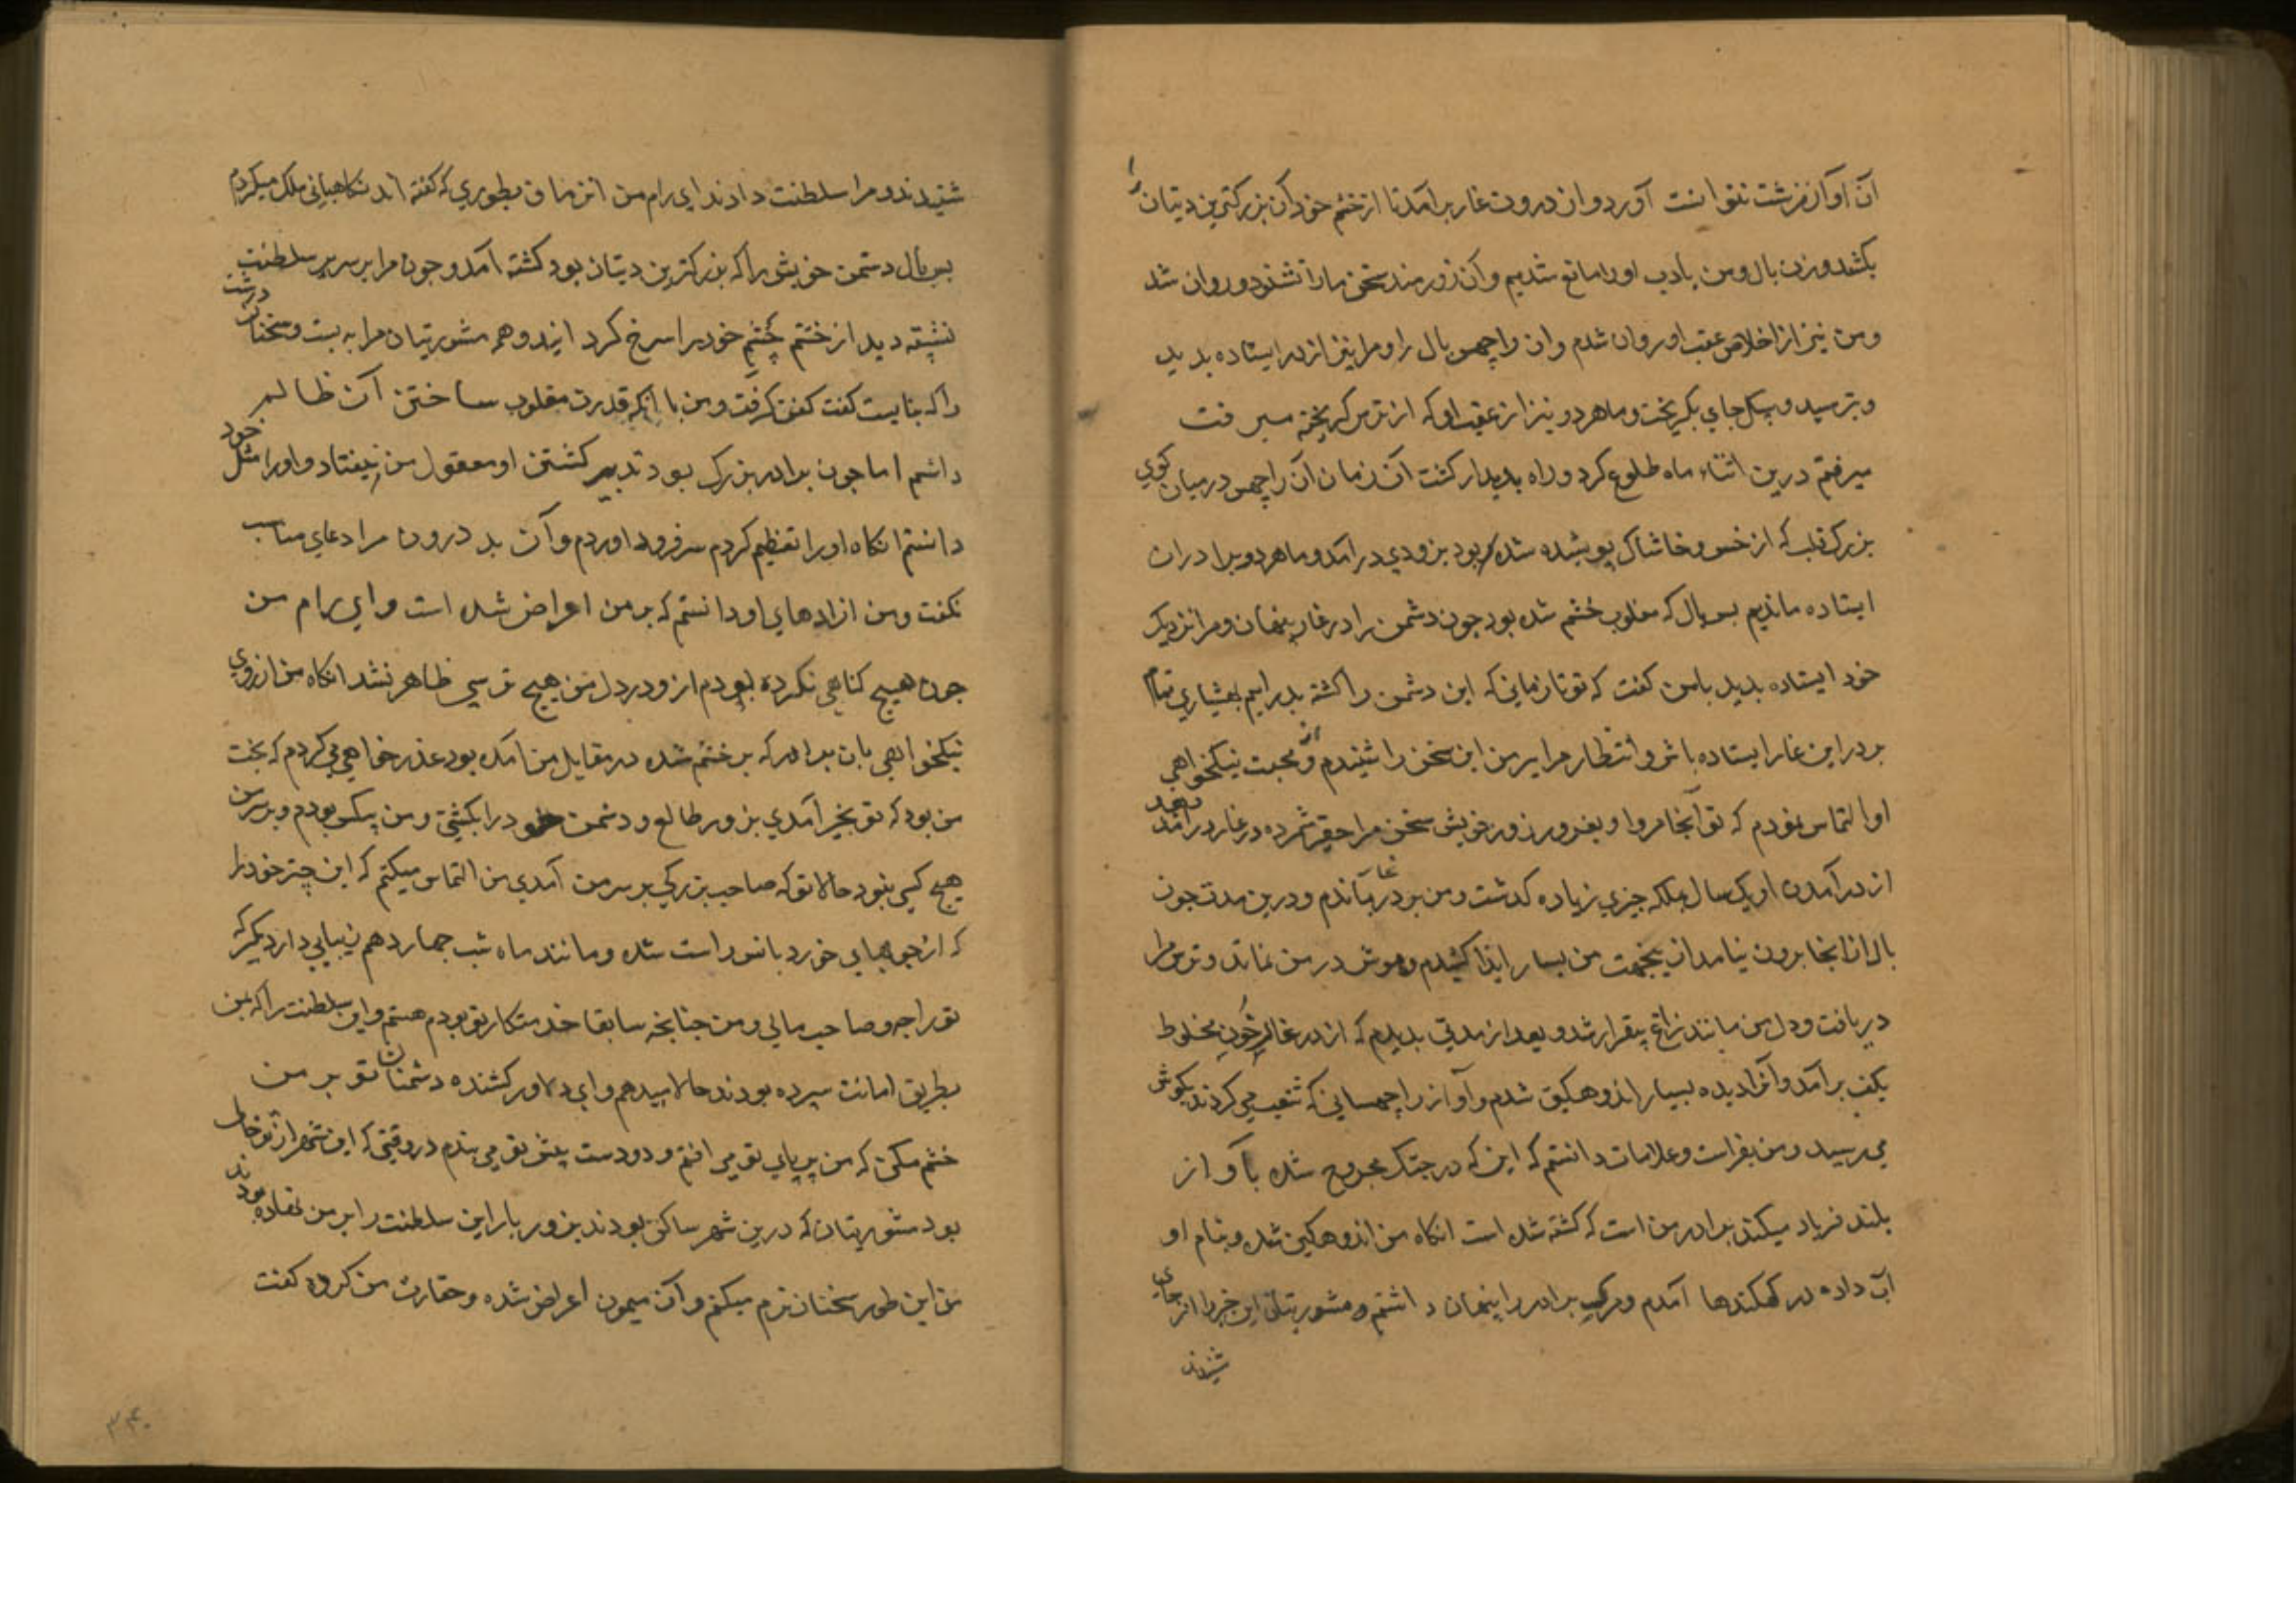 آن آواز زشت نتوانست آورد و از درون غار برآمد تا از خشم خود آن بزرکترین دیتان را
بکشد و زن بال و من بادب او را مانع شدیم و آن زورمند سخن ما را نشنود و روان شد
و من نیز از اخلاص عقب او روان شدم و آن راچهس بال را و مرا نیز از در ایستاده بدید
و بترسید و بیکجای بکریخت و ما هر دو نیز از عقب او که از ترس کریخته میرفت
میرفتم درین اثناء ماه طلوع کرد و راه بدیدار کشت آن زمان آن راچهس در میان کوی
بزرک قلب که از خس و خاشاک پوشیده شده بود بزودی درآمد و ما هر دو برادران
ایستاده ماندیم پس بال که مغلوب خشم شده بود چون دشمن را در غار پنهان و مرا نزدیک
خود ایستاده بدید بامن کفت که تو تا زمانی که این دشمن را کشته بدرایم بهشیاری تمام
بر در این غار ایستاده باش و انتظار مرا بر من این سخن را شنیدم و از محبت نیکخواهی
او را التماس نمودم که تو آنجا مرو او بغرور زور خویش سخن مرا حقیر شمرده در غار درآمد بعد
از درآمدن او یک سال بلکه چیزی زیاده کذشت و من بر در غار بماندم و درین مدت چون
بال از انجا برون نیامد ازینجهت من بسیار ایذا کشیدم و هوش در من نماند و ترس مرا
دریافت و دل من مانند زاغ بیقرار شد و بعد از مدتی بدیدم که از در غار خون مخلوط
بکف برآمد و آنرا دیده بسیار اندوهکین شدم و آواز راچهسانی که شغب می کردند بکوش
می رسید و من بفراست و علامات دانستم که این که در جنک مجروح شده بآواز
بلند فریاد میکند برادر من است که کشته شده است انکاه من اندوهکین شده و بنام او
آب داده در کهکندها آمدم و مرک برادر را پنهان داشتم و مشوریتان این خبر را از جای
شنیدند
شنیدند و مرا سلطنت دادند ای رام من از ان زمان بطوری که کفته اند نکاهبانی ملک میکردم
پس بال دشمن خویش را که بزرکترین دیتان بود کشته آمد و چون مرا بر سریر سلطنت
نشسته دید از خشم چشم خود را سرخ کرد ایند و همه مشوریتان مرا به بست و سخنان درشت
را که نبایست کفت کفتن کرفت و من با آنکه قدرت مغلوب ساختن آن ظالم
داشتم اما چون برادر بزرک بود تدبیر کشتن او معقول من نیفتاد و او را مثل خود
دانستم انکاه او را تعظیم کردم سر فرود اوردم و آن بد درون مرا دعای مناسب
نکفت و من از اداهای او دانستم که بر من اعراض شده است و ای رام من
چون هیچ کناهی نکرده بودم ازو در دل من هیچ ترسی ظاهر نشد انکاه من از روی
نیکخواهی بان برادر که بر خشم شده در مقابل من آمده بود عذر خواهی می کردم که بخت
من بود که تو بخیر آمدی بزور طالع و دشمن خود را بکشتی و من بیکس بودم و بر سر من
هیچ کسی نبود حالا تو که صاحب بزرکی بر سر من آمدی من التماس میکنم که این چتر خود را
که از چوبهای خورد بانس راست شده و مانند ماه شب چهاردهم زیبایی دارد بکیر که
تو راجه و صاحب مالی و من چنانچه سابقا خدمتکار تو بودم هستم و این سلطنت را که بمن
بطریق امانت سپرده بودند حالا میدهم و ای دلاور کشنده دشمنان تو بر من
خشم مکن که من بر پای تو می افتم و دو دست پیش تو می بندم در وقتی که این شهر از تو خالی
بود مشوریتان که درین شهر ساکن بودند بزور بار این سلطنت را بر من نهاده بودند
من این طور سخنان نرم میکفتم و آن میمون اعراض شده و حقارت من کرده کفت
۳۴۰